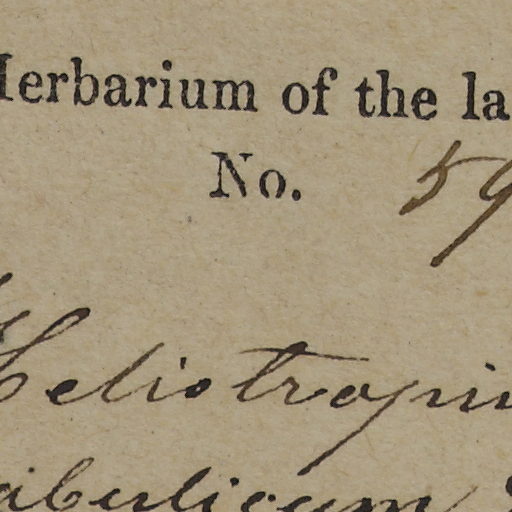 Herbarium of the la
No. 59
Heliotropiu
abulicum